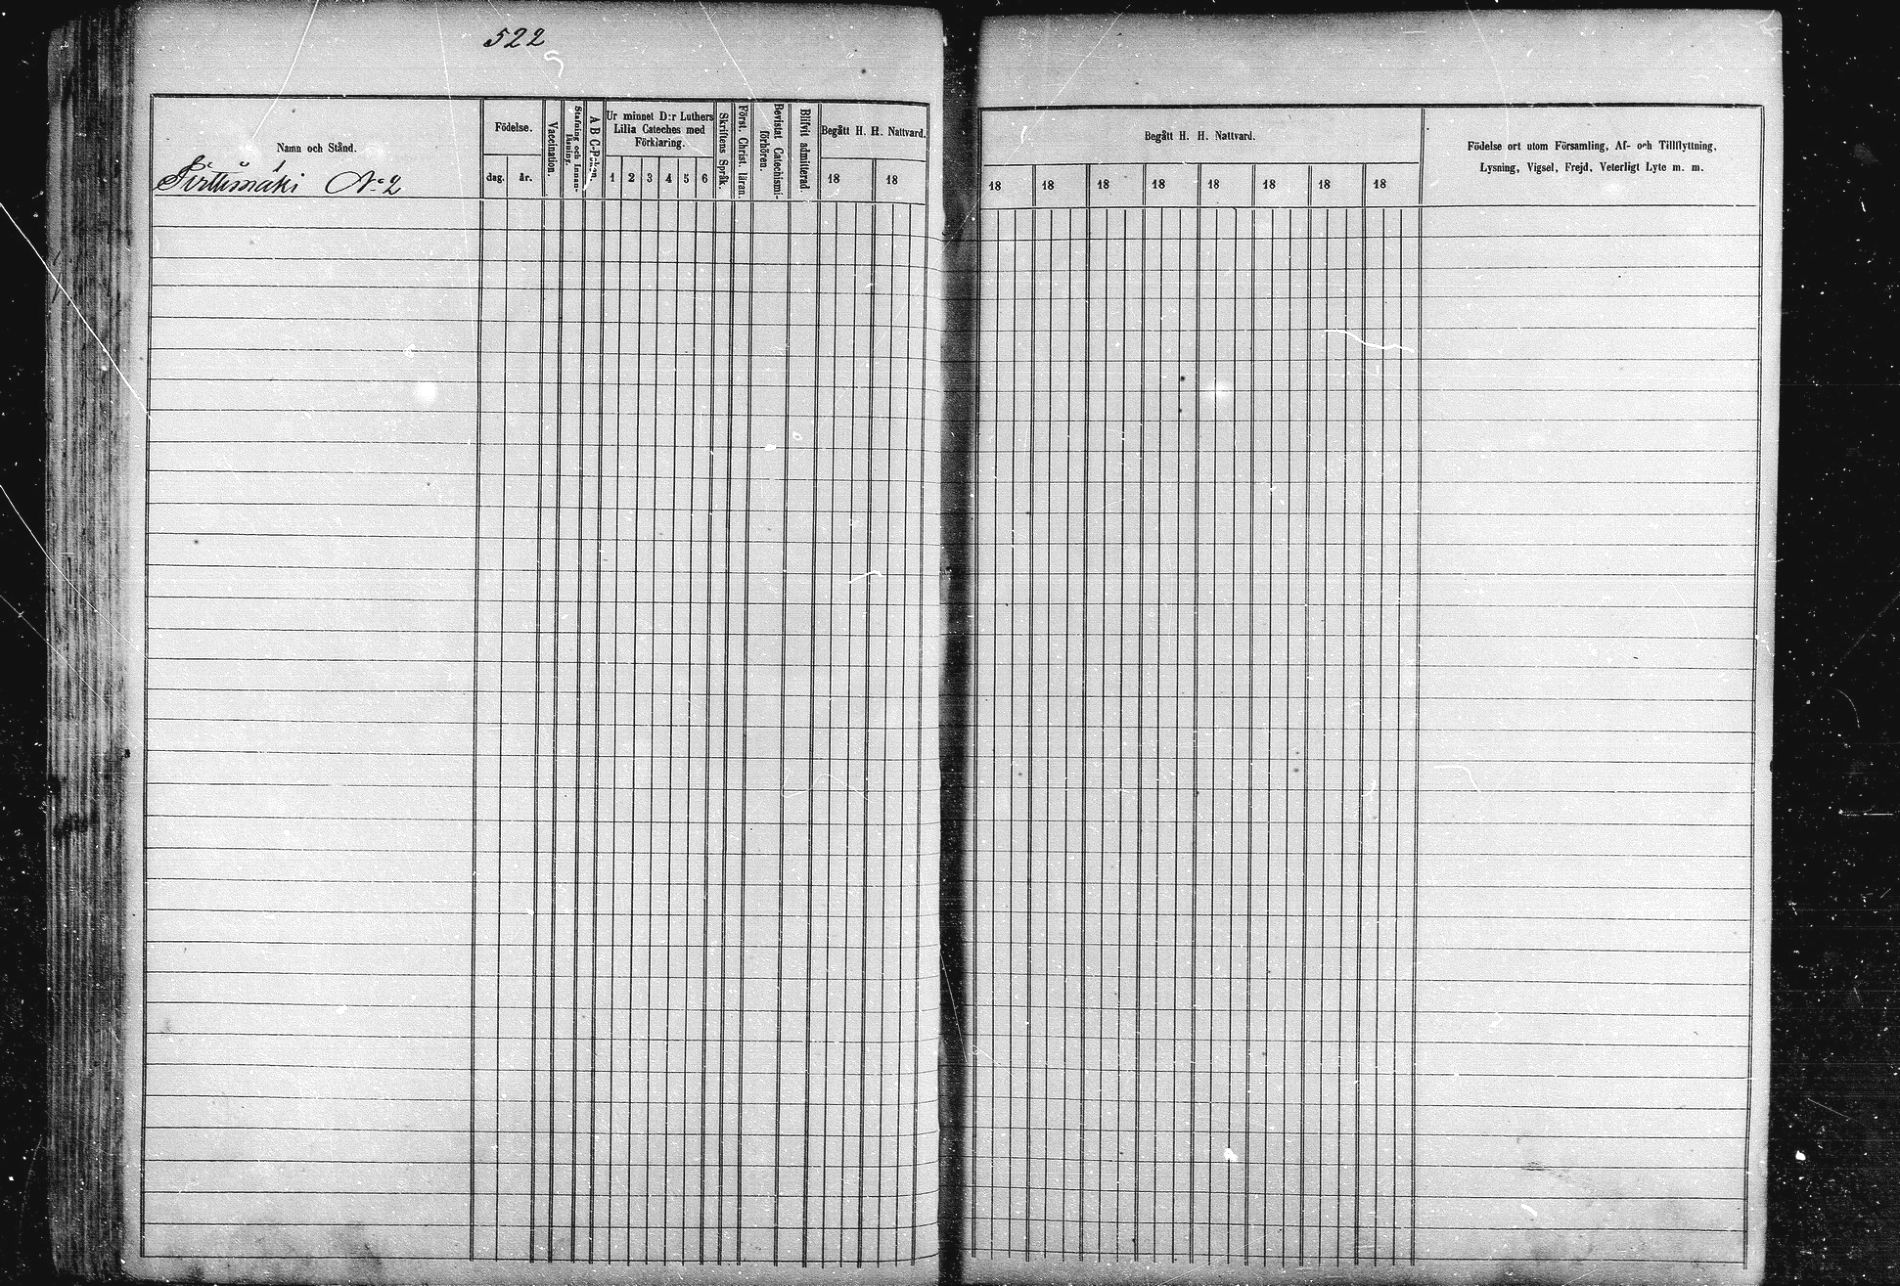 522
Namn och Stånd.
Födelse.
dag.
år.
Vaccination.
Stafning och Innan-
läsning.
A B C-Boken.
Ur minnet D:r Luthers
Lilla Cateches med
Förklaring.
1 2 3 4 5 6
Skriftens Språk.
Först. Christ. läran.
Bevistat Catechismi-
förhören.
Blifvit admitterad.
Begått H. H. Nattvard.
18 18
No 2
Begått H. H. Nattvard.
18 18 18 18 18 18 18 18
Födelse ort utom Församling, Af- och Tillflyttning,
Lysning, Vigsel, Frejd, Veterligt Lyte m. m.